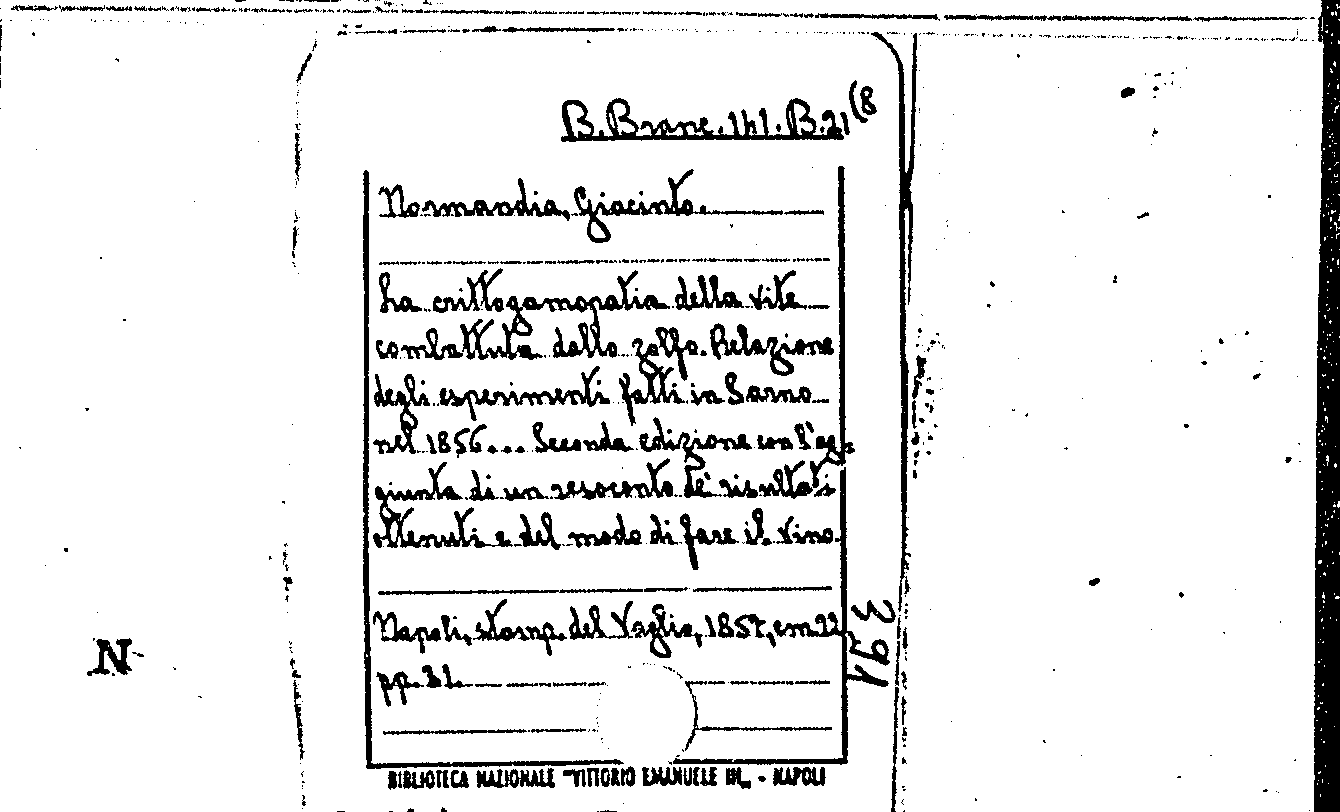 B. Branc. 141. B. 21 (8
Normandia, Giacinto.
La crittogamopatia della vite
combattuta dallo zolfo. Relazione
degli esperimenti fatti in Sarno
nel 1856... Seconda edizione con l'ag-
giunta di un resoconto de' risultati
ottenuti e del modo di fare il vino.
Napoli, stamp. del Vaglio, 1857, cm 22,
pp.
391
N
BIBLIOTECA NAZIONALE "VITTORIO EMANUELE III„ - NAPOLI